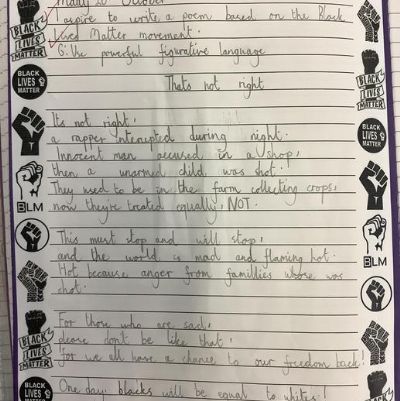 October
I aspire to write a poem based on the Black
Lives Matter movement.
G: Use powerful figurative language
Thats not right
Its not right,
a rapper interupted during night.
Innocent man accused in a shop,
then a unarmed child, was shot.
They used to be in the farm collecting crops,
now they're treated equally, NOT.
This must stop and will stop,
and the world is mad and flaming hot.
Hot because anger from famillies whose was
shot.
For those who are said,
please don't be like that,
for we all have a chance to our freedom back!
One day blacks will be equal to whites!
BLACK
LIVES
MATTER
BLACK
LIVES
MATTER
BLM
BLACK
LIVES
MATTER
BLACK
LIVES
MATTER
BLACK
LIVES
MATTER
BLACK
LIVES
MATTER
BLM